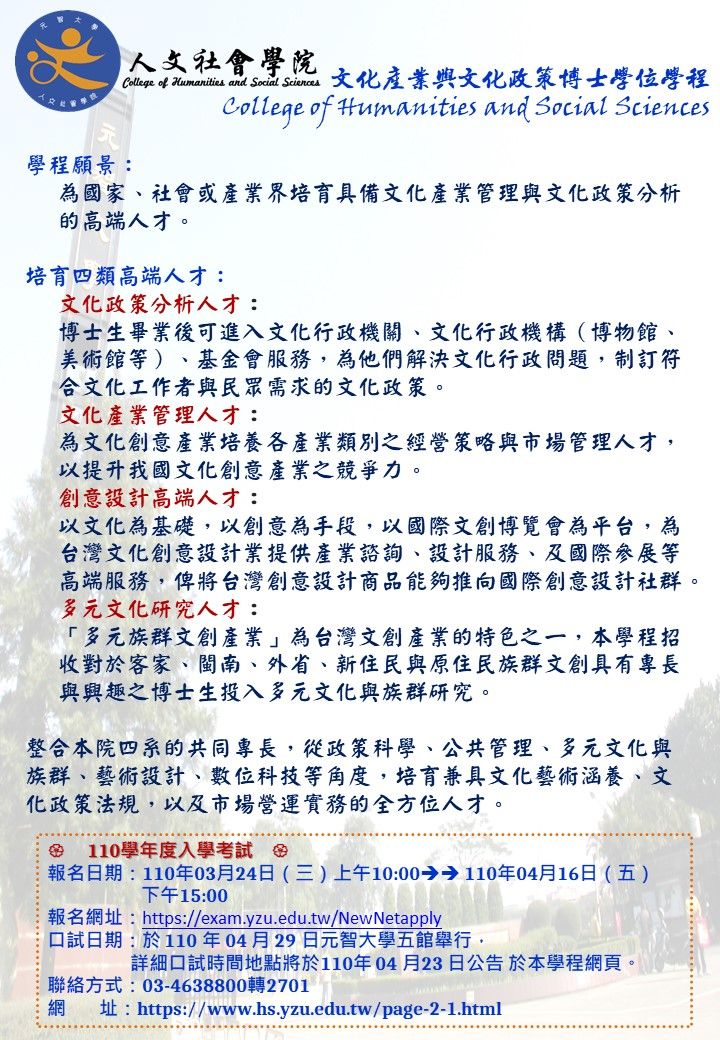 元智大學
人文社會學院
人文社會學院
College of Humanities and Social Sciences
文化產業與文化政策博士學位學程
College of Humanities and Social Sciences
學程願景：
為國家、社會或產業界培育具備文化產業管理與文化政策分析
的高端人才。
培育四類高端人才：
文化政策分析人才：
博士生畢業後可進入文化行政機關、文化行政機構（博物館、
美術館等）、基金會服務，為他們解決文化行政問題，制訂符
合文化工作者與民眾需求的文化政策。
文化產業管理人才：
為文化創意產業培養各產業類別之經營策略與市場管理人才，
以提升我國文化創意產業之競爭力。
創意設計高端人才：
以文化為基礎，以創意為手段，以國際文創博覽會為平台，為
台灣文化創意設計業提供產業諮詢、設計服務、及國際參展等
高端服務，俾將台灣創意設計商品能夠推向國際創意設計社群。
多元文化研究人才：
「多元族群文創產業」為台灣文創產業的特色之一，本學程招
收對於客家、閩南、外省、新住民與原住民族群文創具有專長
與興趣之博士生投入多元文化與族群研究。
整合本院四系的共同專長，從政策科學、公共管理、多元文化與
族群、藝術設計、數位科技等角度，培育兼具文化藝術涵養、文
化政策法規，以及市場營運實務的全方位人才。
110學年度入學考試
報名日期：110年03月24日（三）上午10:00➔➔ 110年04月16日（五）
下午15:00
報名網址：https://exam.yzu.edu.tw/NewNetapply
口試日期：於 110 年 04 月 29 日元智大學五館舉行，
詳細口試時間地點將於110年 04 月23 日公告 於本學程網頁。
聯絡方式：03-4638800轉2701
網 址：https://www.hs.yzu.edu.tw/page-2-1.html